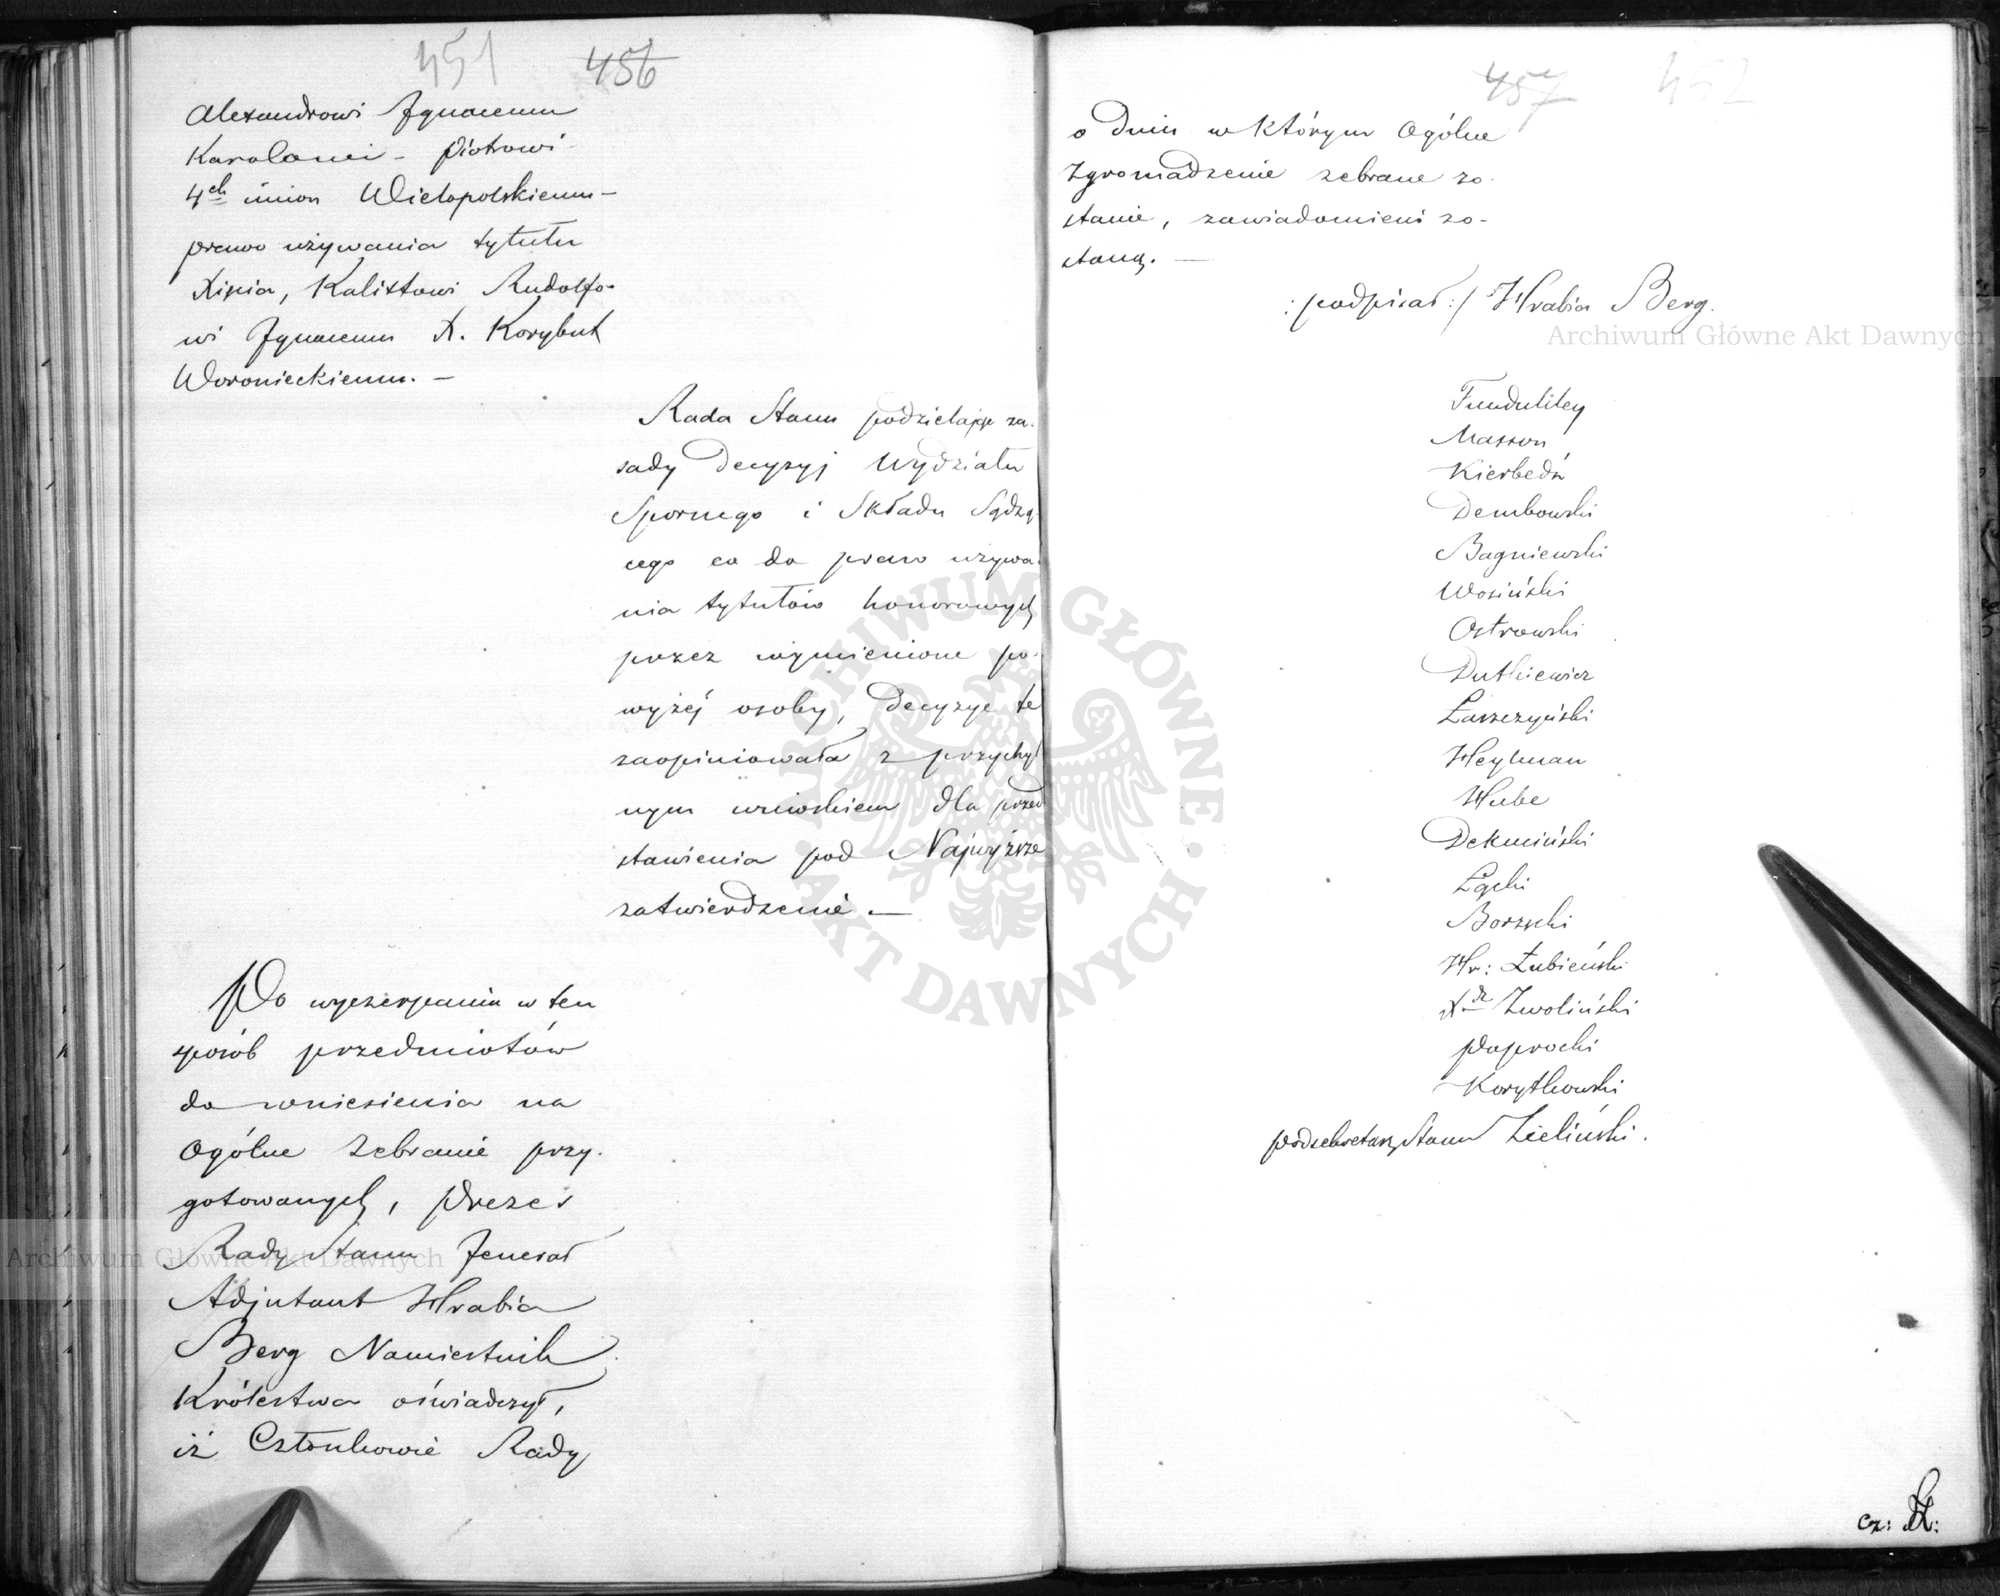 451 456
Alexandrowi Ignacemu
Karolowi - Piotrowi
4ch imion Wielopolskiemu -
prawo używania tytułu
Xięcia, Kalixtowi Rudolfo-
wi Ignacemu X. Korybut
Woronieckiemu. -
Rada Stanu podzielając za-
sady Decyzyj Wydziału
Spornego i Składu Sądzą-
cego co do praw używa-
nia tytułów honorowych
przez wymienione po-
wyżéj osoby, Decyzye te
zaopiniowała z przychyl
nym wnioskiem dla przed
stawienia pod Najwyższe
zatwierdzenie. -
Po wyczerpaniu w ten
sposób przedmiotów
do wniesienia na
Ogólne Zebranie przy-
gotowanych, Prezes
Rady Stanu Jenerał
Adjutant Hrabia
Berg Namiestnik
Królestwa oświadczył,
iż Członkowie Rady
457 452
o dniu w którym Ogólne
Zgromadzenie zebrane zo-
stanie, zawiadomieni zo-
staną. -
: podpisał :/ Hrabia Berg.
Fundukley
Masson
Kierbedź
Dembowski
Bagniewski
Wosiński
Ostrowski
Dutkiewicz
Łaszczyński
Heylman
Hube
Dekuciński
Łącki
Borzęcki
Hr: Łubieński
Xdz Zwoliński
Paprocki
Korytkowski
Podsekretarz Stanu Zieliński.
cz:
Archiwum Główne Akt Dawnych
Archiwum Główne Akt Dawnych
ARCHIWUM GŁÓWNE · AKT DAWNYCH ·